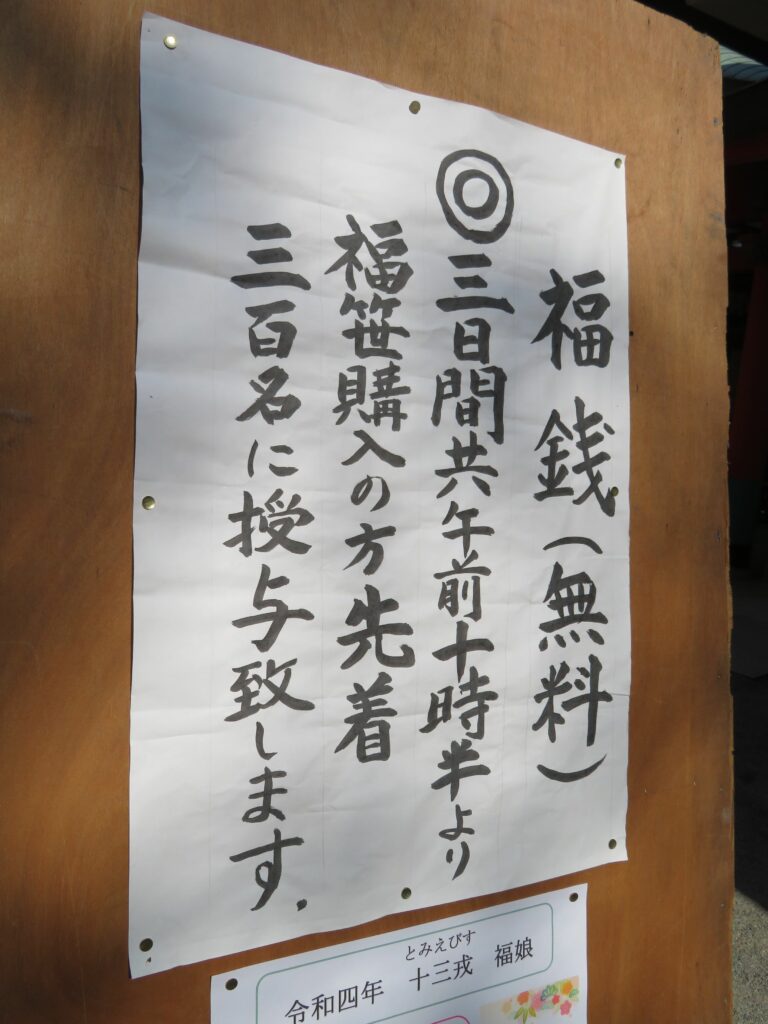 福銭(無料)
◎三日間共午前十時半より
福笹購入の方先着
三百名に授与致します。
とみえびす
令和四年 十三戎 福娘